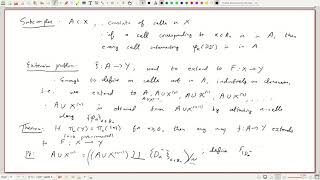 Subcomplex: A ⊂ X, consists of cells in X
if a cell corresponding to α ∈ Bₙ is in A, then
every cell intersecting φₐ(∂Dⁿ) is in A
Extension problem: f: A → Y, want to extend to F: X → Y
Enough to define on cells not in A, inductively on dimension,
i.e. we extend to A, A∪X⁽⁰⁾, A∪X⁽¹⁾, ...
A∪X⁽ⁿ⁾ is obtained from A∪X⁽ⁿ⁻¹⁾ by attaching n-cells
along
Theorem: If for n≥0, then any map f: A → Y extends
to F: X → Y
Pf: A∪X⁽ⁿ⁾ = , define